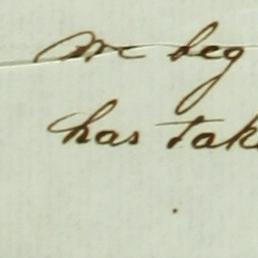 We beg
has tak